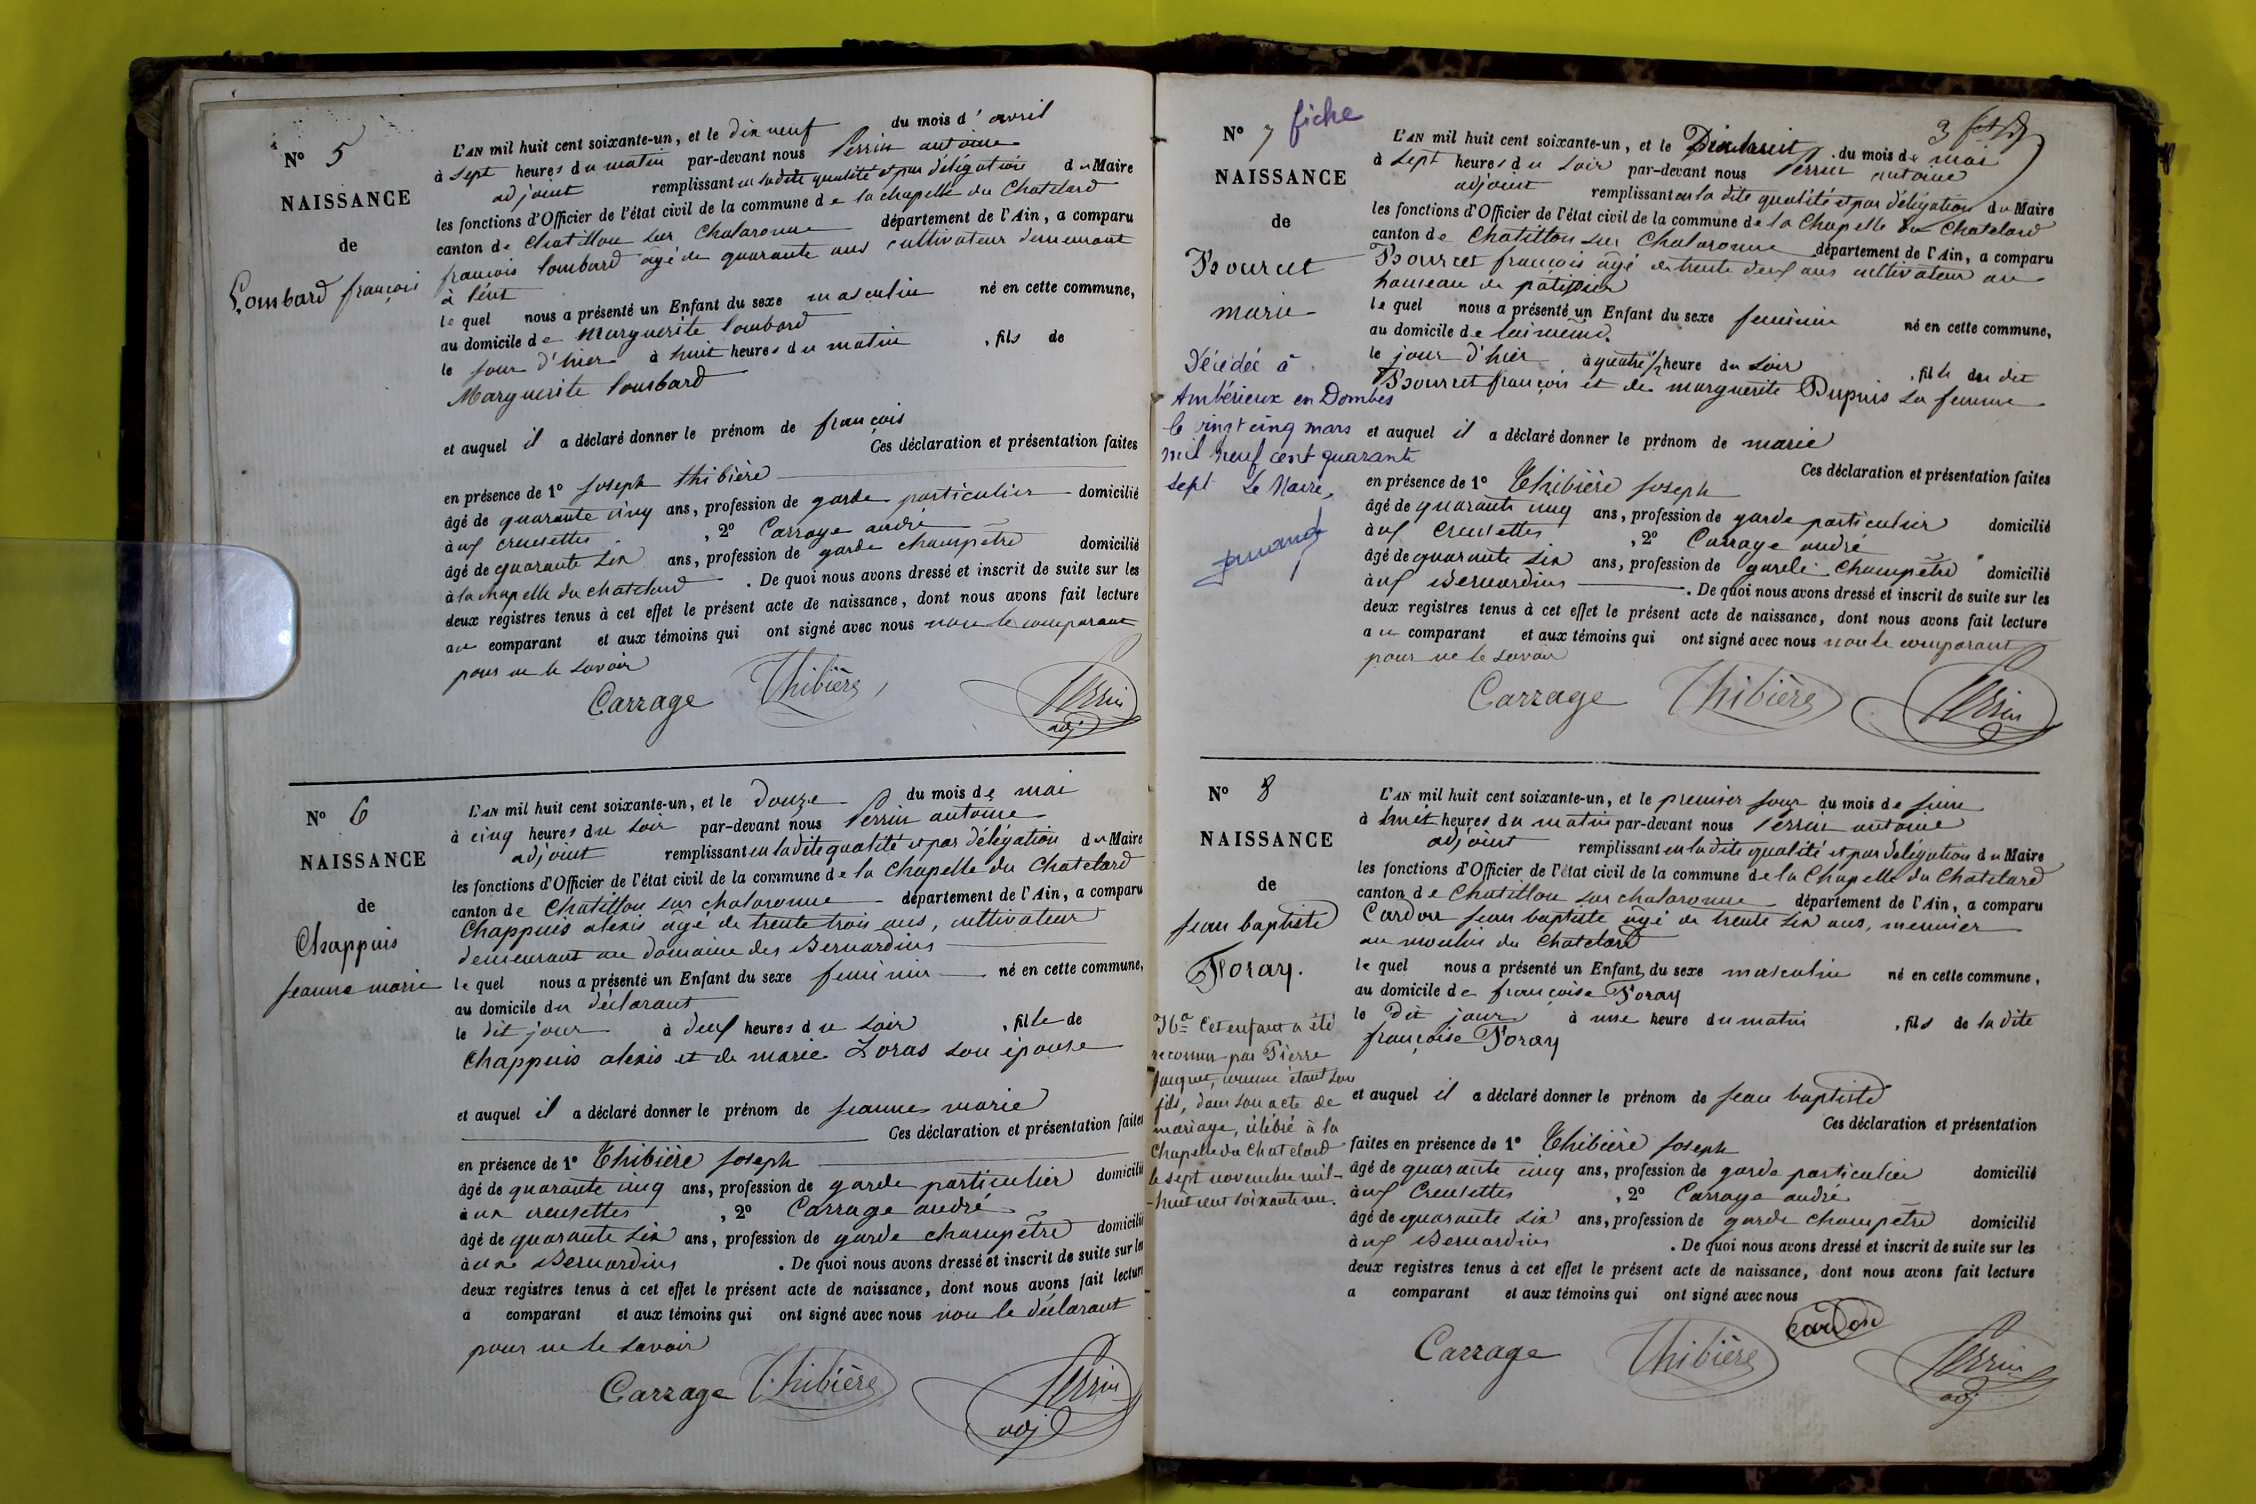 N° 5
NAISSANCE
de
Lombard françois
L'AN mil huit cent soixante-un, et le dix neuf du mois d'avril
à sept heures du matin par-devant nous Perrin antoine
adjoint remplissant en la dite qualité et par délégation du Maire
les fonctions d'Officier de l'état civil de la commune de la chapelle du Chatelard
canton de Chatillon sur Chalaronne département de l'Ain, a comparu
françois lombard âgé de quarante ans cultivateur demeurant
à
le quel nous a présenté un Enfant du sexe masculin né en cette commune,
au domicile de Marguerite lombard
le jour d'hier à huit heures du matin , fils de
Marguerite lombard
et auquel il a déclaré donner le prénom de françois
Ces déclaration et présentation faites
en présence de 1° Joseph thibière
âgé de quarante cinq ans, profession de garde particulier domicilié
aux creusettes , 2° Carrage andré
âgé de quarante six ans, profession de garde champêtre domicilié
à la chapelle du chatelard . De quoi nous avons dressé et inscrit de suite sur les
deux registres tenus à cet effet le présent acte de naissance, dont nous avons fait lecture
au comparant et aux témoins qui ont signé avec nous non le comparant
pour ne le savoir
Carrage Thibière Perrin
adj
N° 6
NAISSANCE
de
Chappuis
Jeanne marie
L'AN mil huit cent soixante-un, et le douze du mois de mai
à cinq heures du soir par-devant nous Perrin antoine
adjoint remplissant en la dite qualité et par délégation du Maire
les fonctions d'Officier de l'état civil de la commune de la Chapelle du Chatelard
canton de Chatillon sur chalaronne département de l'Ain, a comparu
Chappuis alexis âgé de trente trois ans, cultivateur
demeurant au domaine des Bernardins
le quel nous a présenté un Enfant du sexe feminin né en cette commune,
au domicile du déclarant
le dit jour à deux heures du soir , fille de
Chappuis alexis et de marie Loras son épouse
et auquel il a déclaré donner le prénom de jeanne marie
Ces déclaration et présentation faites
en présence de 1° Thibière Joseph
âgé de quarante cinq ans, profession de garde particulier domicilié
aux creusettes , 2° Carrage andré
âgé de quarante six ans, profession de garde champêtre domicilié
aux Bernardins . De quoi nous avons dressé et inscrit de suite sur les
deux registres tenus à cet effet le présent acte de naissance, dont nous avons fait lecture
a comparant et aux témoins qui ont signé avec nous non le déclarant
pour ne le savoir
Carrage Thibière Perrin
adj
fiche
N° 7
NAISSANCE
de
Bourcet
marie
Décédée à
Ambérieux en Dombes
le vingt cinq mars
mil neuf cent quarante
sept Le Maire,
L'AN mil huit cent soixante-un, et le Dix huit du mois de mai
à sept heures du soir par-devant nous Perrin antoine
adjoint remplissant en la dite qualité et par délégation du Maire
les fonctions d'Officier de l'état civil de la commune de la Chapelle du Chatelard
canton de Chatillon sur Chalaronne département de l'Ain, a comparu
Bourcet françois âgé de trente deux ans cultivateur au
hameau de
le quel nous a présenté un Enfant du sexe feminin né en cette commune,
au domicile de lui même.
le jour d'hier à quatre 1/2 heure du soir , fille du dit
Bourcet françois et de marguerite Dupuis sa femme
et auquel il a déclaré donner le prénom de marie
Ces déclaration et présentation faites
en présence de 1° Thibière Joseph
âgé de quarante cinq ans, profession de garde particulier domicilié
aux Creusettes , 2° Carrage andré
âgé de quarante six ans, profession de garde Champêtre domicilié
aux Bernardins . De quoi nous avons dressé et inscrit de suite sur les
deux registres tenus à cet effet le présent acte de naissance, dont nous avons fait lecture
au comparant et aux témoins qui ont signé avec nous non le comparant
pour ne le savoir
Carrage Thibière Perrin
N° 8
NAISSANCE
de
jean baptiste
Foray.
Na Cet enfant a été
reconnu par Pierre
Jacquet, comme étant son
fils, dans son acte de
mariage, célébré à la
Chapelle du Chatelard
le sept novembre mil-
-huit cent soixante un.
L'AN mil huit cent soixante-un, et le premier jour du mois de juin
à huit heures du matin par-devant nous Perrin antoine
adjoint remplissant en la dite qualité et par délégation du Maire
les fonctions d'Officier de l'état civil de la commune de la Chapelle du Chatelard
canton de Chatillon sur chalaronne département de l'Ain, a comparu
Cardon jean baptiste âgé de trente six ans, meunier
au moulin du Chatelard
le quel nous a présenté un Enfant du sexe masculin né en cette commune,
au domicile de françoise Foray
le Dit jour à une heure du matin , fils de la dite
françoise Foray
et auquel il a déclaré donner le prénom de jean baptiste
Ces déclaration et présentation
faites en présence de 1° Thibière Joseph
âgé de quarante cinq ans, profession de garde particulier domicilié
aux Creusettes , 2° Carrage andré
âgé de quarante six ans, profession de garde champêtre domicilié
aux Bernardins . De quoi nous avons dressé et inscrit de suite sur les
deux registres tenus à cet effet le présent acte de naissance, dont nous avons fait lecture
a comparant et aux témoins qui ont signé avec nous
Cardon
Carrage Thibière Perrin
adj